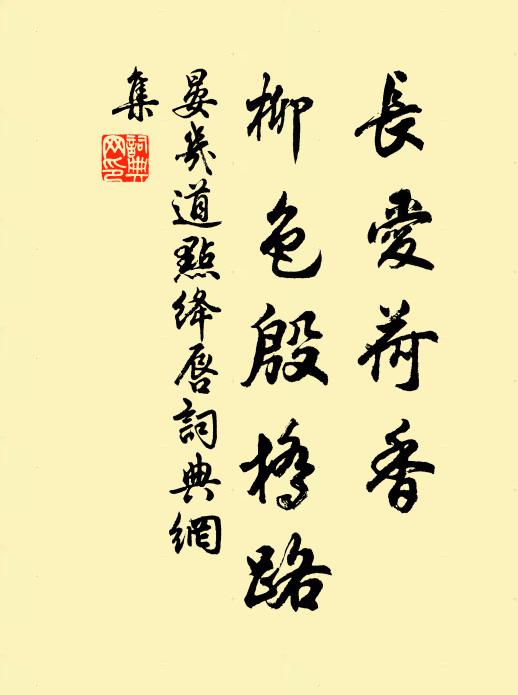 長愛荷香
柳色殷橋路
晏幾道點絳唇詞典網
集
詞典
网印